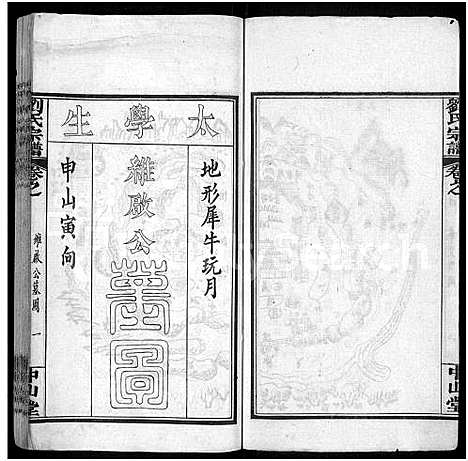 劉氏宗譜
卷之
中山堂
太學生
地形犀牛玩月
維啟公
墓圖
申山寅向
劉氏宗譜
卷之
維啟公墓圖
一
中山堂